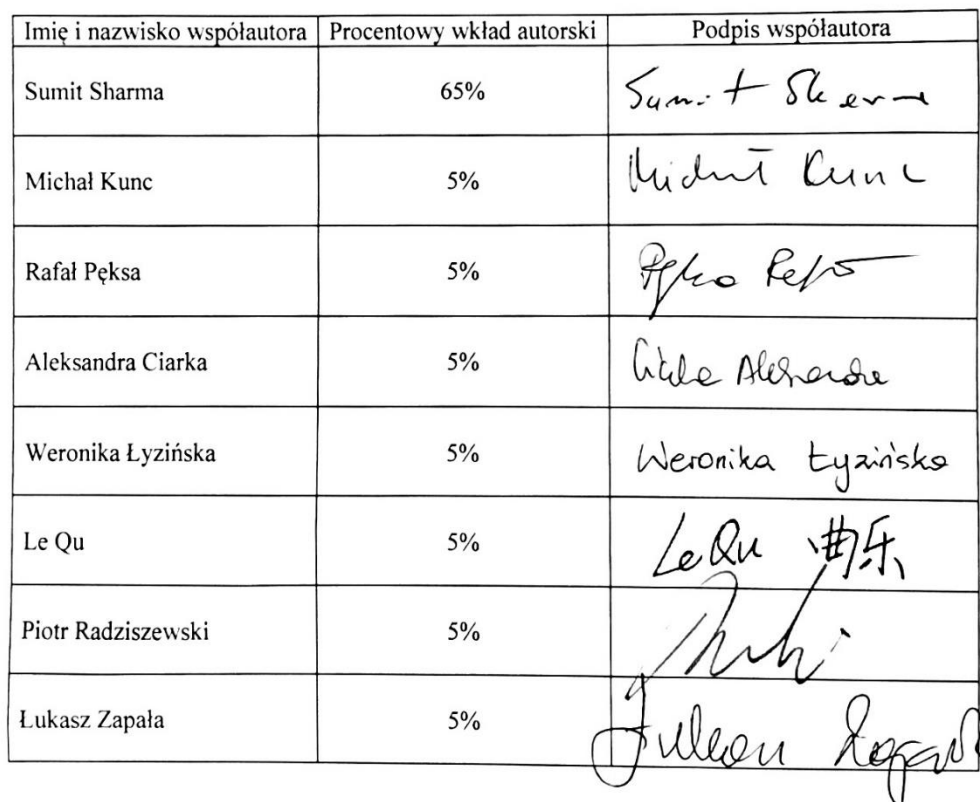 Imię i nazwisko współautora Procentowy wkład autorski Podpis współautora
Sumit Sharma 65% Sumit Sharma
Michał Kunc 5% Michał Kunc
Rafał Pęksa 5% Pęksa Rafał
Aleksandra Ciarka 5% Ciarka Aleksandra
Weronika Łyzińska 5% Weronika Łyzińska
Le Qu 5% Le Qu 曲乐
Piotr Radziszewski 5%
Łukasz Zapała 5%